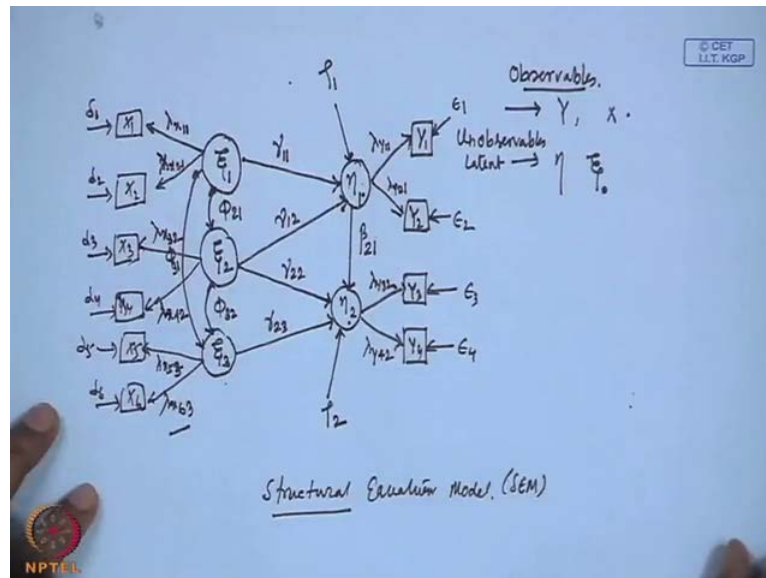 © CET
I.I.T. KGP
Observables.
→ Y, X.
Unobservables
Latent → η ξ.
ζ1
δ1 → X1 λx11
δ2 → X2 λx21
δ3 → X3 λx32
δ4 → X4 λx42
δ5 → X5 λx53
δ6 → X6 λx63
ξ1
ξ2
ξ3
Φ21
Φ31
Φ32
γ11
γ12
γ22
γ23
η1
β21
η2
λy11 Y1 ← ε1
λy21 Y2 ← ε2
λy32 Y3 ← ε3
λy42 Y4 ← ε4
ζ2
Structural Equation Model. (SEM)
NPTEL